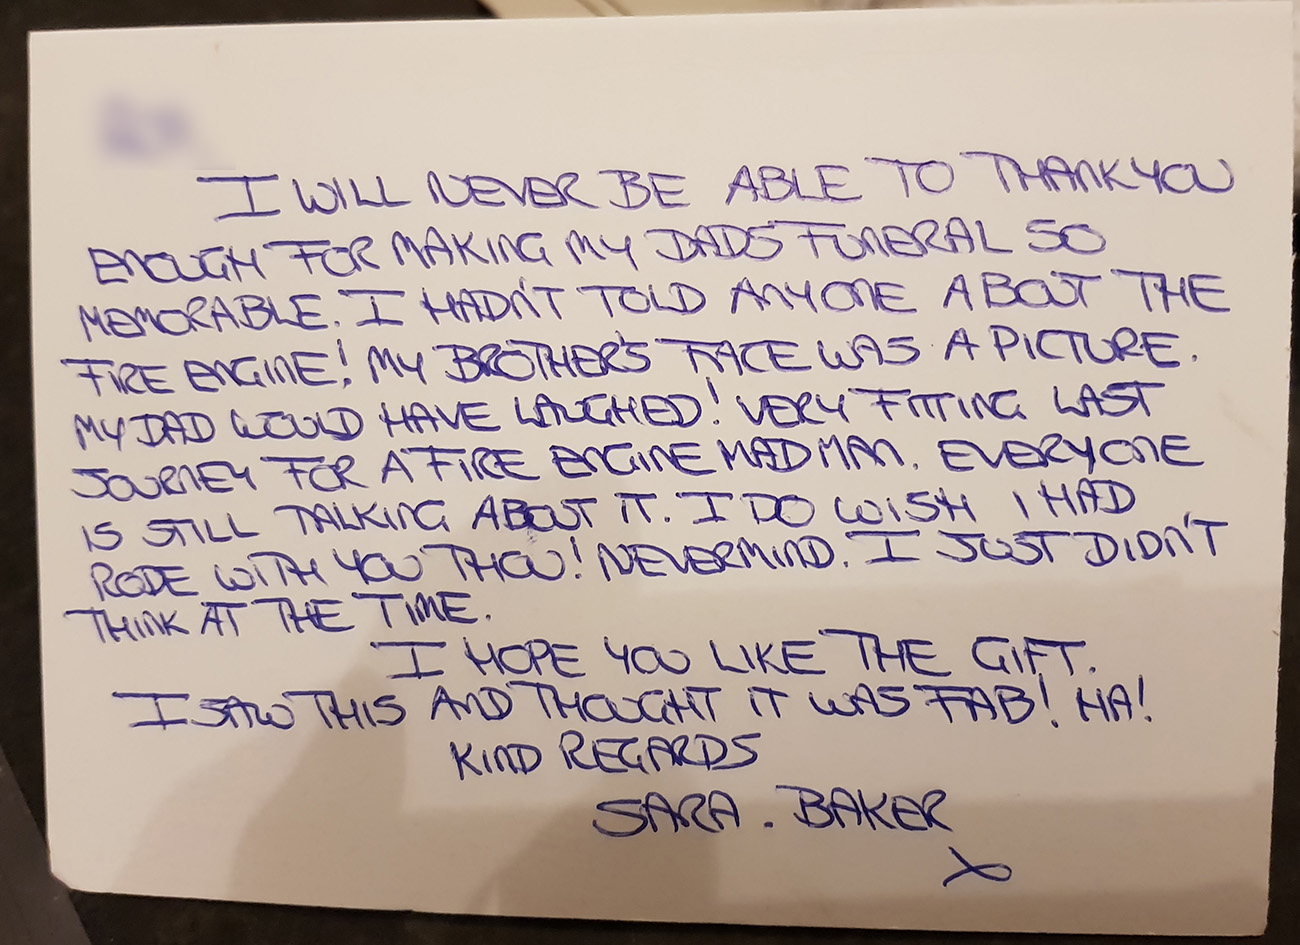 I WILL NEVER BE ABLE TO THANKYOU
ENOUGH FOR MAKING MY DADS FUNERAL SO
MEMORABLE. I HADN'T TOLD ANYONE ABOUT THE
FIRE ENGINE! MY BROTHER'S FACE WAS A PICTURE.
MY DAD WOULD HAVE LAUGHED! VERY FITTING LAST
JOURNEY FOR A FIRE ENGINE MAD MAN. EVERYONE
IS STILL TALKING ABOUT IT. I DO WISH I HAD
RODE WITH YOU THOU! NEVERMIND. I JUST DIDN'T
THINK AT THE TIME.
I HOPE YOU LIKE THE GIFT.
I SAW THIS AND THOUGHT IT WAS FAB! HA!
KIND REGARDS
SARA. BAKER
X